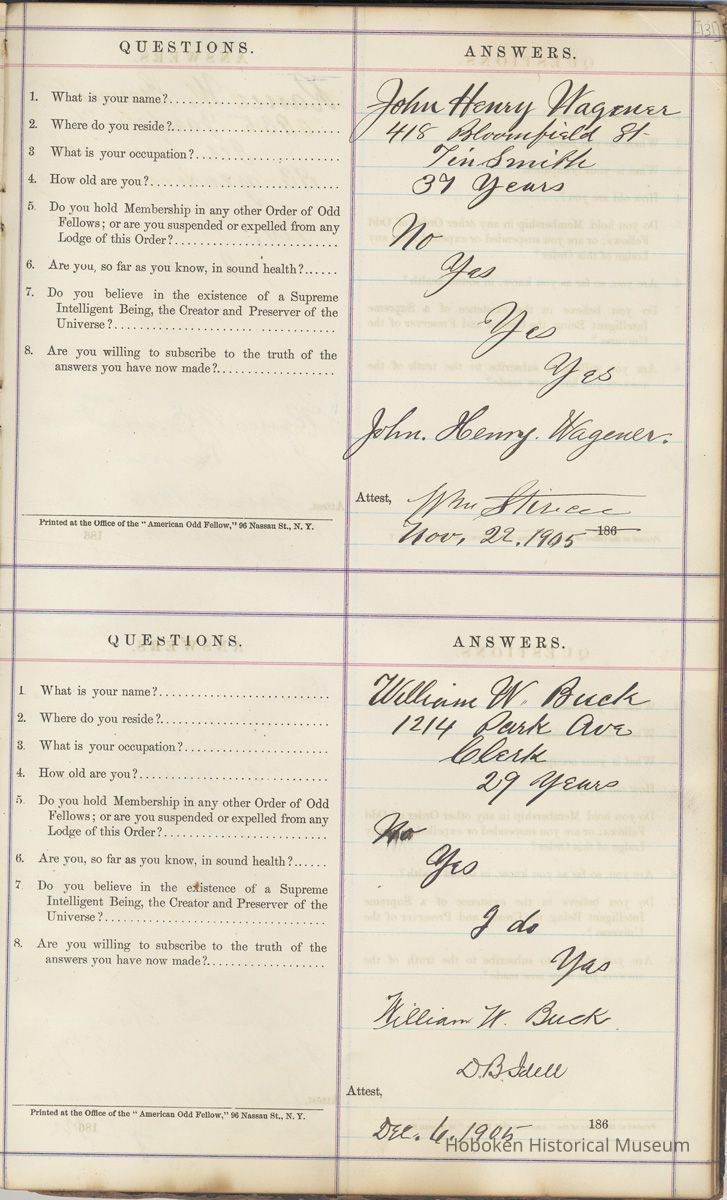 [131]
QUESTIONS.
ANSWERS.
1. What is your name?
John Henry Wagener
2. Where do you reside?
418 Bloomfield St
3 What is your occupation?
TinSmith
4. How old are you?
37 Years
5. Do you hold Membership in any other Order of Odd
Fellows; or are you suspended or expelled from any
Lodge of this Order?
No
6. Are you, so far as you know, in sound health?
Yes
7. Do you believe in the existence of a Supreme
Intelligent Being, the Creator and Preserver of the
Universe?
Yes
8. Are you willing to subscribe to the truth of the
answers you have now made?
Yes
John. Henry. Wagener.
Attest,
Wm
Nov. 22. 1905 186
Printed at the Office of the "American Odd Fellow," 96 Nassau St., N. Y.
QUESTIONS.
ANSWERS.
1 What is your name?
William W. Buck
2. Where do you reside?
1214 Park Ave
3. What is your occupation?
Clerk
4. How old are you?
29 Years
5. Do you hold Membership in any other Order of Odd
Fellows; or are you suspended or expelled from any
Lodge of this Order?
No
6. Are you, so far as you know, in sound health?
Yes
7. Do you believe in the existence of a Supreme
Intelligent Being, the Creator and Preserver of the
Universe?
I do
8. Are you willing to subscribe to the truth of the
answers you have now made?
Yes
William W. Buck
D. B. Idell
Attest,
Dec. 6. 1905 186
Printed at the Office of the "American Odd Fellow," 96 Nassau St., N. Y.
Hoboken Historical Museum